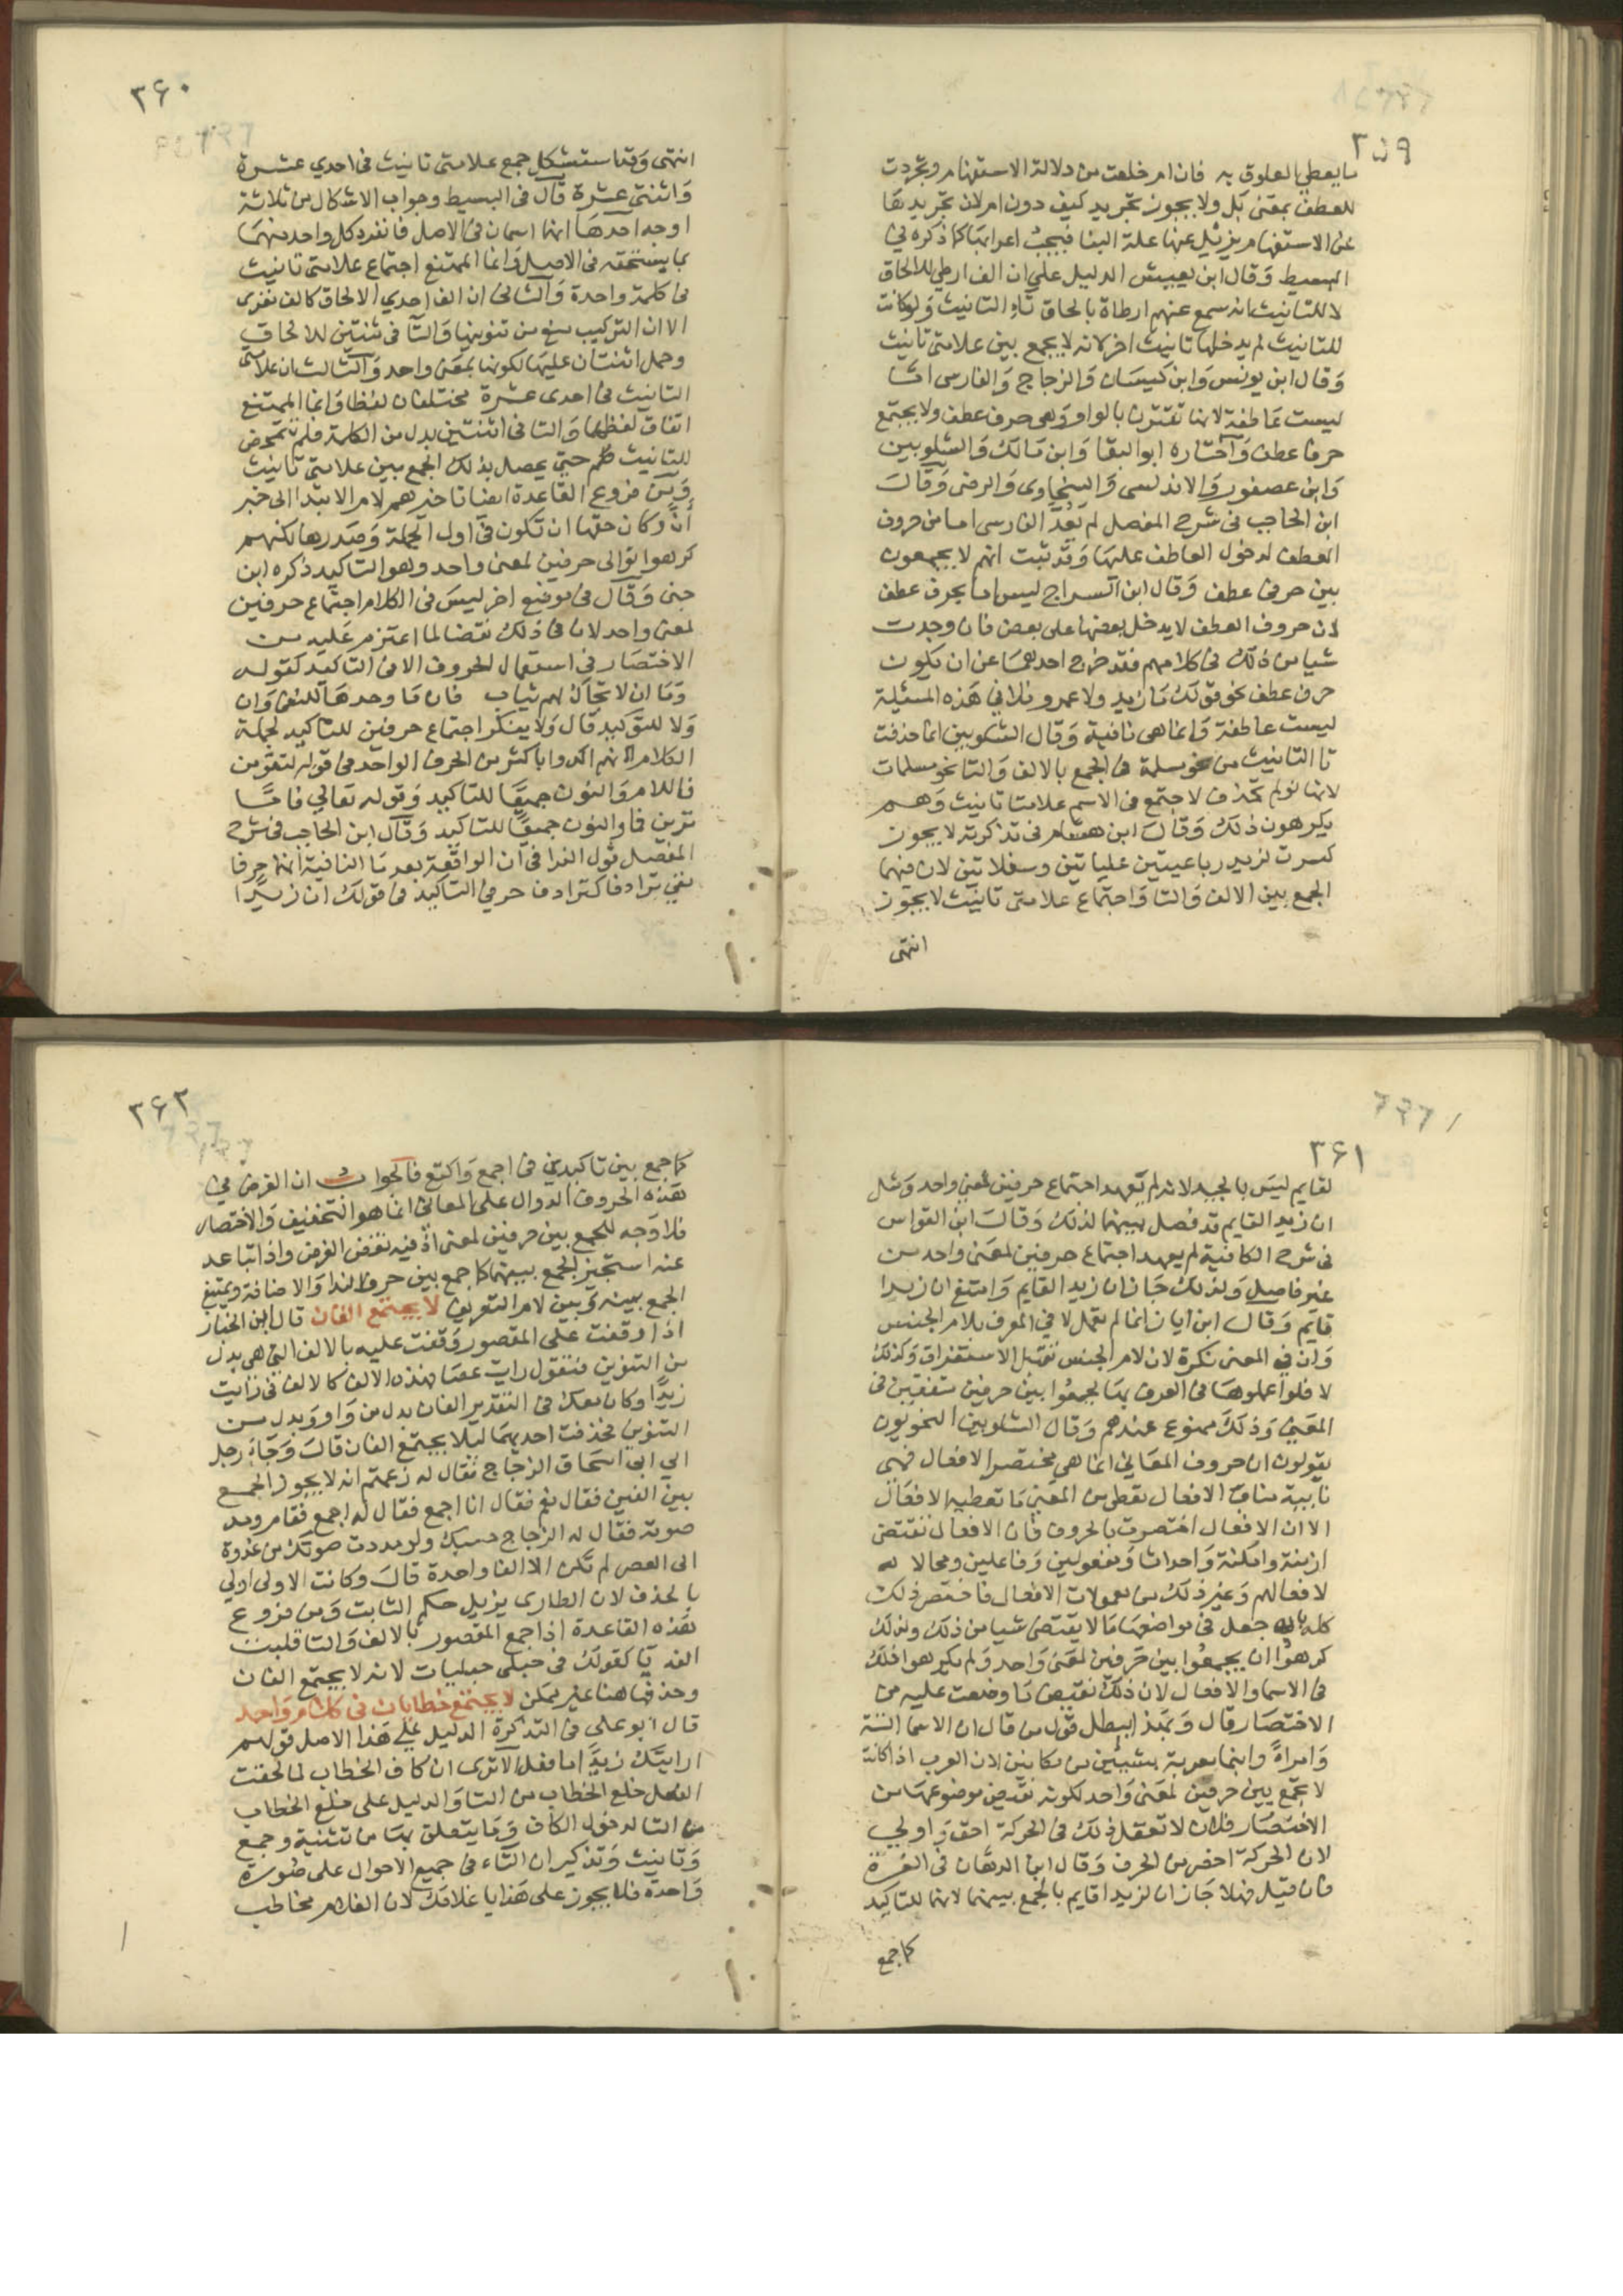 ٣٥٩
ما يعطي العلوق به فان ام خلعت من دلالة الاستفهام وتجردت
للعطف بمعنى بل ولا يجوز تجريد كيف دون ام لان تجريدها
عن الاستفهام يزيل عنها علة البنا فيجب اعرابها كما ذكره في
البسيط وقال ابن يعيش الدليل على ان الف ارطى للالحاق
لا للتانيث انه سمع عنهم ارطاة بالحاق تاء التانيث ولو كانت
للتانيث لم يدخلها تانيث اخر لانه لا يجمع بين علامتى تانيث
وقال ابن يونس وابن كيسان والزجاج والفارسى اما
ليست عاطفة لانها تقترن بالواو وهى حرف عطف ولا يجتمع
حرفا عطف واختاره ابو البقا وابن مالك والشلوبين
وابن عصفور والاندلسى والسخاوى والرضى وقال
ابن الحاجب فى شرح المفصل لم يعد الفارسى اما من حروف
العطف لدخول العاطف عليها وقد ثبت انهم لا يجمعون
بين حرفى عطف وقال ابن السراج ليس اما بحرف عطف
لان حروف العطف لا يدخل بعضها على بعض فان وجدت
شيا من ذلك فى كلامهم فقد خرج احدهما عن ان يكون
حرف عطف نحو قولك ما زيد ولا عمرو فلا فى هذه المسئلة
ليست عاطفة وانما هى نافية وقال الشلوبين انما حذفت
تا التانيث من نحو مسلمة فى الجمع بالالف والتا نحو مسلمات
لانها لو لم تحذف لاجتمع فى الاسم علامتا تانيث وهم
يكرهون ذلك وقال ابن هشام فى تذكرته لا يجوز
كسرت لزيد رباعيتين علياتين وسفلاتين لان فيهما
الجمع بين الالف والتا واجتماع علامتى تانيث لا يجوز
انتهى
٣٦٠
انتهى وقد استشكل جمع علامتى تانيث فى احدي عشرة
واثنتى عشرة قال فى البسيط وجواب الاشكال من ثلاثة
اوجه احدها انهما اسمان فى الاصل فانفرد كل واحد منهما
بما يستحقه فى الاصل وانما الممتنع اجتماع علامتى تانيث
فى كلمة واحدة والثانى ان الف احدي الالحاق كالف معزى
الا ان التركيب منع من تنوينها والتا فى ثنتين للالحاق
وحمل اثنتان عليها لكونها بمعنى واحد والثالث ان علامتى
التانيث فى احدى عشرة مختلفان لفظا وانما الممتنع
اتفاق لفظهما والتا فى اثنتين بدل من الكلمة فلم تتمحض
للتانيث حتى يحصل بذلك الجمع بين علامتى تانيث
ومن فروع القاعدة ايضا تاخيرهم لام الابتدا الى خبر
ان وكان حقها ان تكون فى اول الجملة وصدرها لكنهم
كرهوا توالى حرفين لمعنى واحد وهو التاكيد ذكره ابن
جنى وقال فى موضع اخر ليس فى الكلام اجتماع حرفين
لمعنى واحد لان فى ذلك نقضا لما اعتزم عليه من
الاختصار فى استعمال الحروف الا فى التاكيد كقوله
وما ان لا تحاك لهم ثياب فان ما وحدها للنفى وان
ولا للتوكيد قال ولا ينكر اجتماع حرفين للتاكيد لجملة
الكلام لانهم اكدوا باكثر من الحرف الواحد فى قوله لتقومن
فاللام والنون جميعا للتاكيد وقوله تعالى فاما
ترين فما والنون جميعا للتاكيد وقال ابن الحاجب فى شرح
المفصل قول الفرا فى ان الواقعة بعد ما النافية انها حرفا
نفي ترادفا كترادف حرفي التاكيد فى قولك ان زيدا
٣٦١
لقايم ليس بالجيد لانه لم يعهد اجتماع حرفين لمعنى واحد ومثل
ان زيد القايم قد فصل بينهما لذلك وقال ابن القواس
فى شرح الكافية لم يعهد اجتماع حرفين لمعنى واحد من
غير فاصل ولذلك جاز ان زيد القايم وامتنع ان زيدا
قايم وقال ابن اياز انما لم تعمل لا في المعرف بلام الجنس
وان فى المعنى نكرة لان لام الجنس تقبل الاستغراق وكذلك
لا فلو اعملوها فى المعرف بها لجمعوا بين حرفين متفقين فى
المعنى وذلك ممنوع عندهم وقال الشلوبين النحويون
يقولون ان حروف المعاني انما هي مختصر الافعال فهى
نايبة مناب الافعال تعطى من المعنى ما تعطيه الافعال
الا ان الافعال اختصرت بالحروف فان الافعال تقتضى
ازمنة وامكنة واحداثا ومفعولين وفاعلين ومحالا
لافعالهم وغير ذلك من معمولات الافعال فاختصر ذلك
كله بان جعل فى مواضعها ما لا يقتضى شيا من ذلك ولذلك
كرهوا ان يجمعوا بين حرفين لمعنى واحد ولم يكرهوا ذلك
فى الاسما والافعال لان ذلك نقيض ما وضعت عليه من
الاختصار قال وبهذا يبطل قول من قال ان الاسما الستة
وامراة وابنما معربة بشيئين من مكانين لان العرب اذا كانت
لا تجمع بين حرفين لمعنى واحد لكونه نقيض موضوعهما من
الاختصار فلان لا تعقل ذلك فى الحركة احق واولي
لان الحركة اخصر من الحرف وقال ابن الدهان فى الغرة
فان قيل فهلا جاز ان لزيدا قايم بالجمع بينهما لانهما للتاكيد
كما جمع
٣٦٢
كما جمع بين تاكيدين فى اجمع واكتع فالجواب ان الغرض في
هذه الحروف الدوال على المعانى انما هو التخفيف والاختصار
فلا وجه للجمع بين حرفين لمعنى اذ فيه نقض الغرض واذا تباعد
عنه استجيز الجمع بينهما كما جمع بين حرف الندا والاضافة ويمتنع
الجمع بينه وبين لام التعريف لا يجتمع الفان قال ابن الخباز
اذا وقفت على المقصور وقفت عليه بالالف التي هى بدل
من التنوين فتقول رايت عصا فهذه الالف كالالف فى رايت
زيدا وكان معك فى التقدير الفان بدل من واو وبدل من
التنوين فحذفت احديهما ليلا يجتمع الفان قال وجاء رجل
الى ابى اسحاق الزجاج فقال له زعمتم انه لا يجوز الجمع
بين الفين فقال نعم فقال انا اجمع فقال له اجمع فقام ومد
صوته فقال له الزجاج حسبك ولو مددت صوتك من غدوة
الى العصر لم تكن الا الفا واحدة قال وكانت الاولى اولى
بالحذف لان الطارى يزيل حكم الثابت ومن فروع
هذه القاعدة اذا جمع المقصور بالالف والتا قلبت
الفه يا كقولك فى حبلى حبليات لانه لا يجتمع الفان
وحذفها هنا غير ممكن لا يجتمع خطابان فى كلام واحد
قال ابو على فى التذكرة الدليل على هذا الاصل قولهم
ارايتك زيدا ما فعل الا ترى ان كاف الخطاب لما لحقت
الفعل خلع الخطاب من التا والدليل على خلع الخطاب
من التا لدخول الكاف وما يتعلق بها من تثنية وجمع
وتانيث وتذكير ان التاء فى جميع الاحوال على صورة
واحدة فلا يجوز على هذا يا غلامك لان الغلام مخاطب